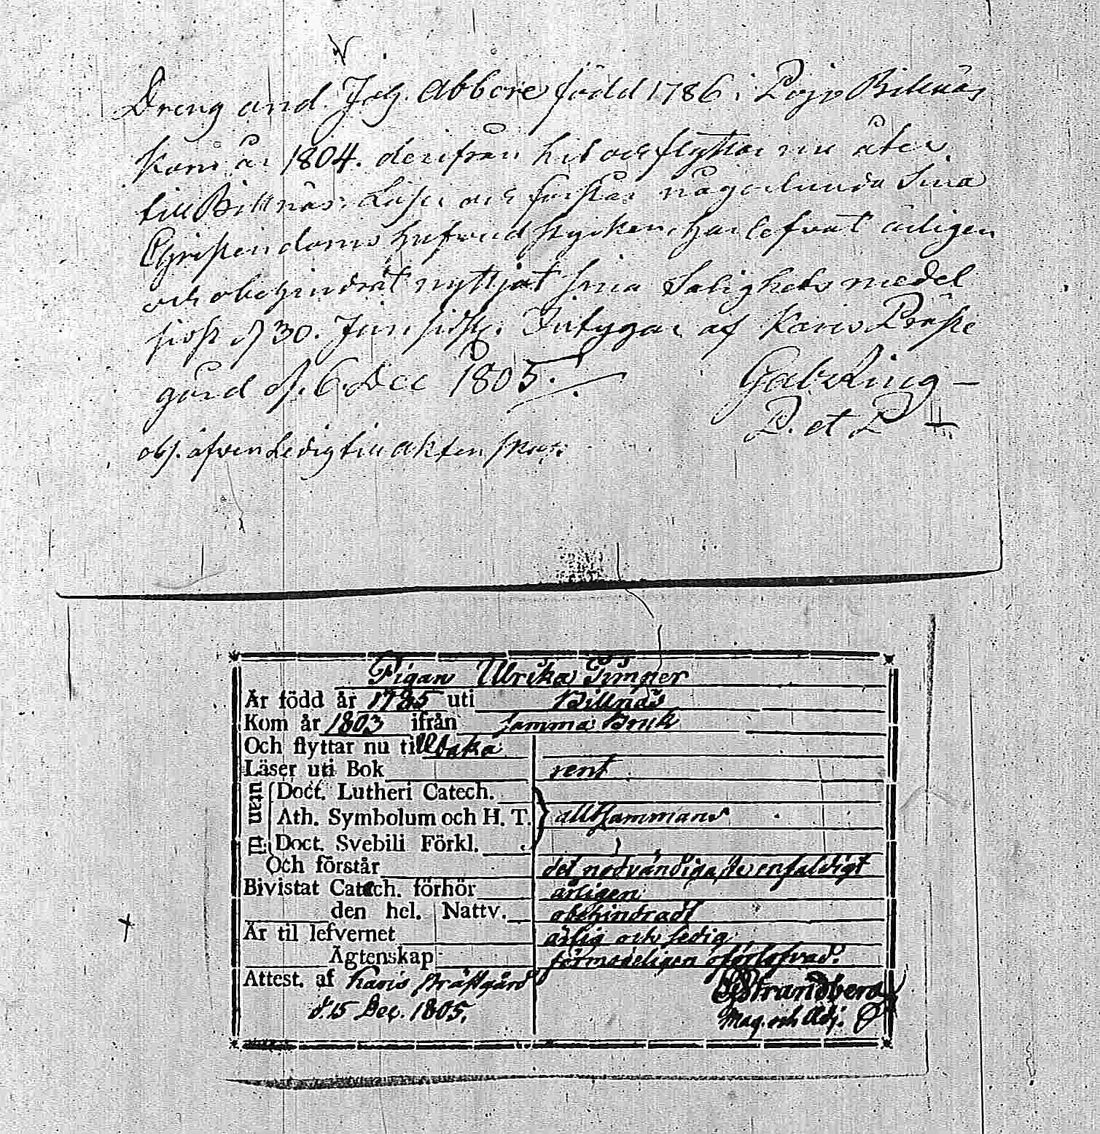 Dreng and. Joh. Abbore född 1786 i Pojo Billnäs
Kom år 1804. derifrån hit och flyttar nu åter
till Billnäs. Läser och förstår någorlunda Sina
Christendoms hufvud stycken, har lefvat ärligen
och obehindrat nyttjat sina Salighets medel
sidst d 30. Juni sidstl. Intygar af Karis Präste
gård d. 6 Dec 1805.
Gab. Ring
P. et P
obs. äfven Ledig till akten skap.
Pigan Ulrika Timper
Är född år 1785 uti Billnäs
Kom år 1803 ifrån samma Bruk
Och flyttar nu tillbaka
Läser uti Bok rent
utan til
Doct. Lutheri Catech.
Ath. Symbolum och H. T. allsammans
Doct. Svebili Förkl.
Och förstår det nödvändigaste enfaldigt
Bivistat Catech. förhör årligen
den hel. Nattv. obehindradt
Är til lefvernet ärlig och ledig
Ägtenskap förmodeligen oförlofvad.
Attest. af Karis Prästgård
d. 15 Dec. 1805.
Strandberg
Mag. och Adj.